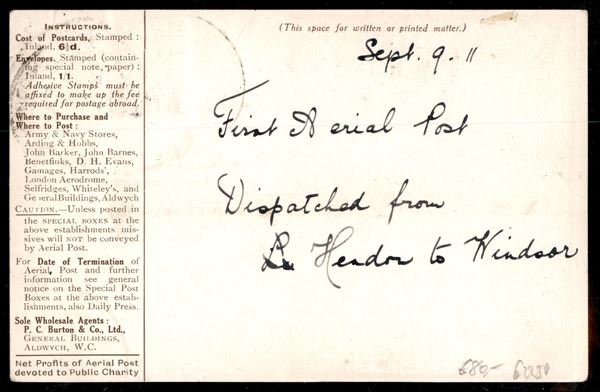 INSTRUCTIONS.
Cost of Postcards, Stamped :
Inland, 6½d.
Envelopes, Stamped (contain-
ing special note paper) :
Inland, 1/1.
Adhesive Stamps must be
affixed to make up the fee
required for postage abroad.
Where to Purchase and
Where to Post :
Army & Navy Stores,
Arding & Hobbs,
John Barker, John Barnes,
Benetfinks, D. H. Evans,
Gamages, Harrods',
London Aerodrome,
Selfridges, Whiteley's, and
General Buildings, Aldwych
CAUTION.—Unless posted in
the SPECIAL BOXES at the
above establishments mis-
sives will NOT be conveyed
by Aerial Post.
For Date of Termination of
Aerial Post and further
information see general
notice on the Special Post
Boxes at the above estab-
lishments, also Daily Press.
Sole Wholesale Agents :
P. C. Burton & Co., Ltd.,
GENERAL BUILDINGS,
ALDWYCH, W.C.
Net Profits of Aerial Post
devoted to Public Charity
(This space for written or printed matter.)
Sept. 9. 11
First Aerial Post
Dispatched from
Hendon to Windsor
680,-